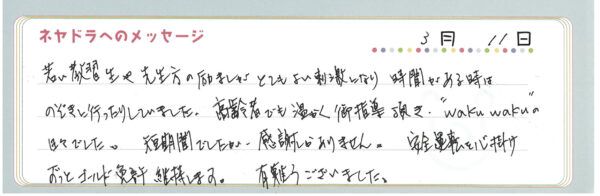 ネヤドラへのメッセージ
3月 11日
若い教習生や先生方の励ましがとてもよい刺激になり 時間がある時は
のぞきに行ったりしていました。高齢者でも温かく御指導頂き・"waku waku"の
日々でした。 短期間でしたが 感謝しかありません。 安全運転を心掛け
ずっとゴールド免許維持します。 有難うございました。